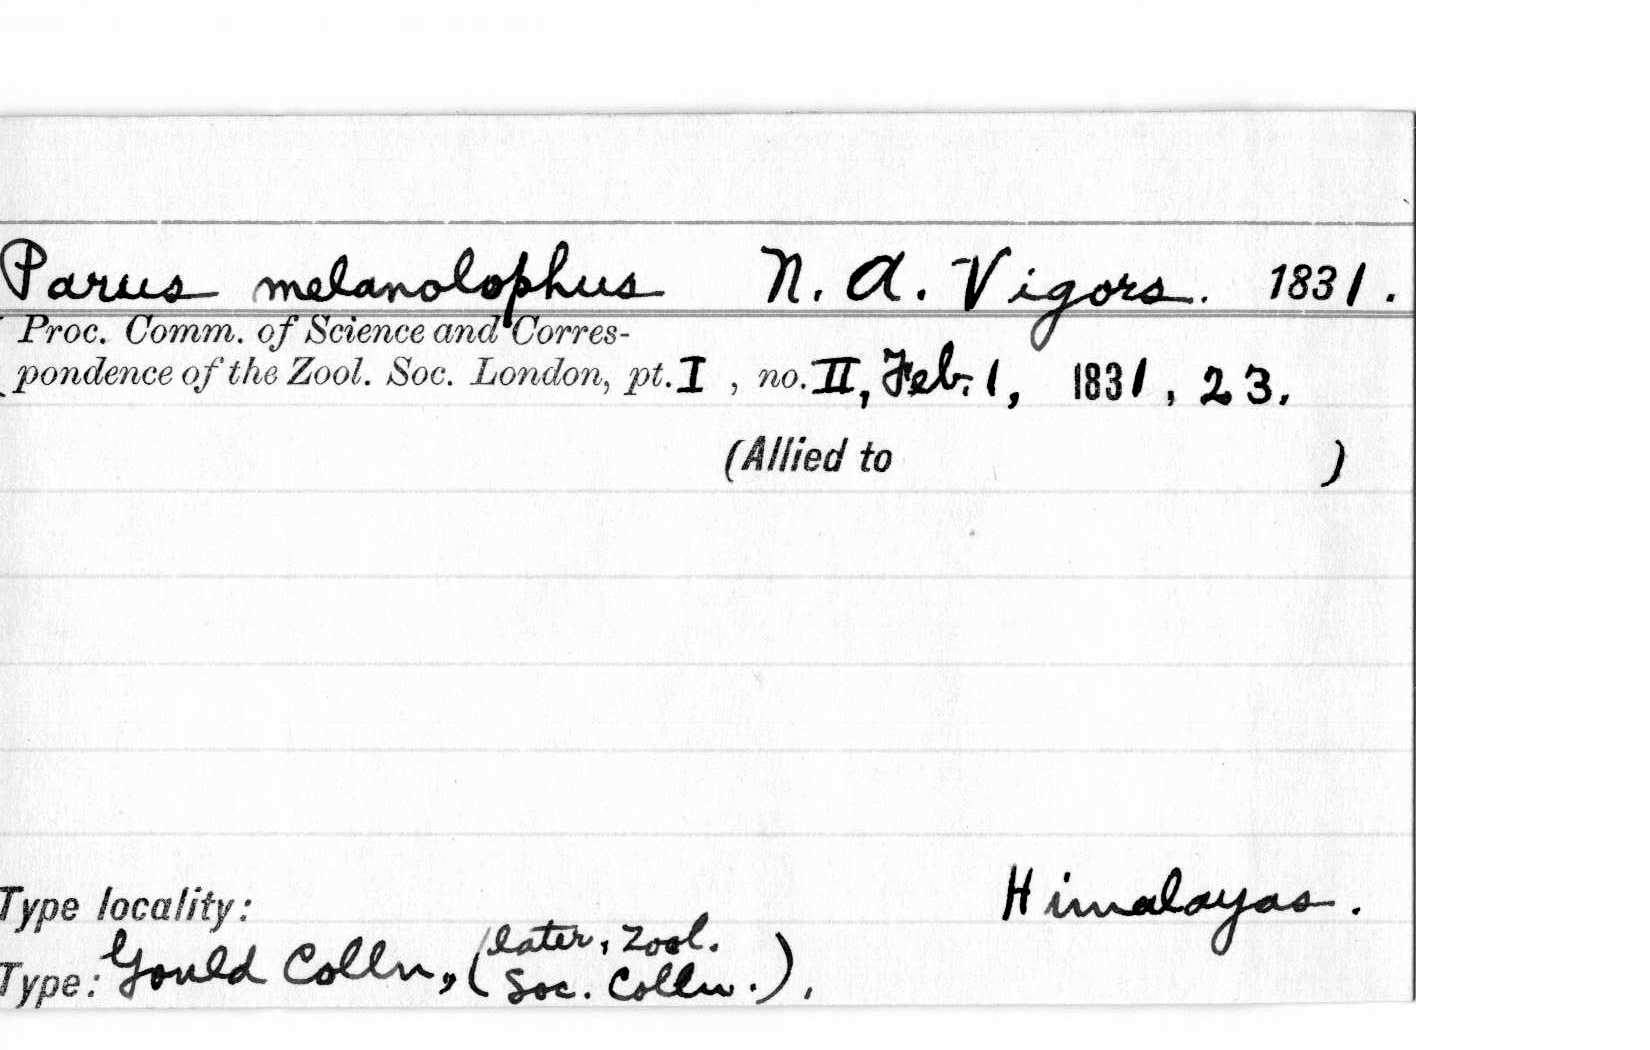 Parus melanolophus N. A. Vigors. 1831.
Proc. Comm. of Science and Corres-
pondence of the Zool. Soc. London, pt. I , no. II, Feb. 1, 1831, 23.
(Allied to )
Type locality: Himalayas.
Type: Gould Colln., (later, Zool.
Soc. Colln.).